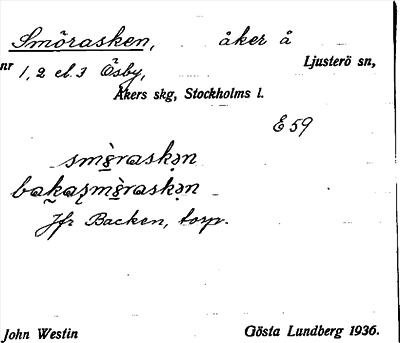 Smörasken, åker å
Ljusterö sn,
nr 1, 2 el. 3 Ösby,
Åkers skg, Stockholms l.
E 59
Jfr Backen, torp.
John Westin Gösta Lundberg 1936.